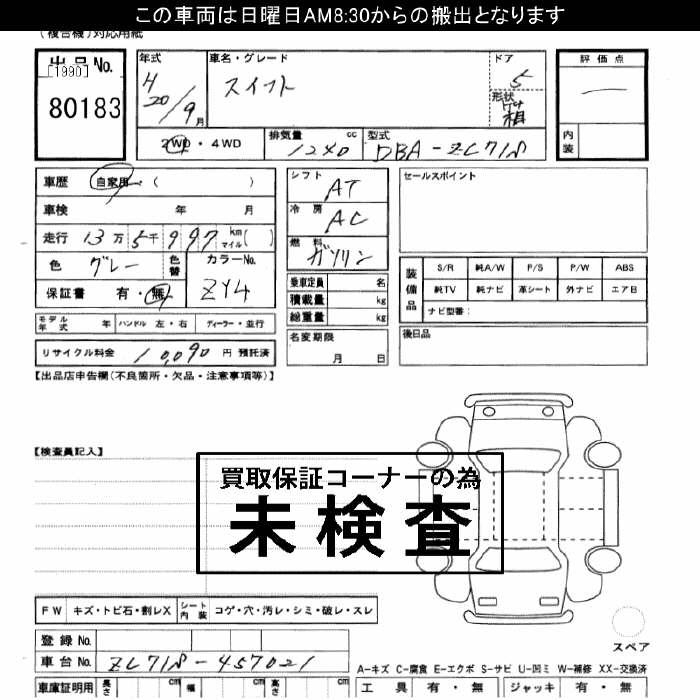 この車両は日曜日AM8:30からの搬出となります
(複合機)対応用紙
出品No.
[1990]
80183
年式
H20/9月
車名・グレード
スイフト
ドア
5
形状
評価点
内装
2WD・4WD
排気量 cc
1240
型式
DBA-ZC71S
車歴 自家用・( )
車検 年 月
走行 13万5千997km マイル( )
色 グレー
色替
カラーNo.
ZY4
保証書 有・無
モデル年式 年 ハンドル 左・右 ディーラー・並行
リサイクル料金 10,090円 預託済
シフト AT
冷房 AC
燃料 ガソリン
乗車定員 名
積載量 kg
総重量 kg
名変期限
月 日
セールスポイント
装備品
S/R 純A/W P/S P/W ABS
純TV 純ナビ 革シート 外ナビ エアB
ナビ型番:
後日品
【出品店申告欄(不良箇所・欠品・注意事項等)】
【検査員記入】
買取保証コーナーの為
未検査
FW キズ・トビ石・割レX
シート内装 コゲ・穴・汚レ・シミ・破レ・スレ
登録No.
車台No. ZC71S-457021
車庫証明用 長さ cm 幅 cm 高さ cm
スペア
A-キズ C-腐食 E-エクボ S-サビ U-凹ミ W-補修 XX-交換済
工具 有・無 ジャッキ 有・無